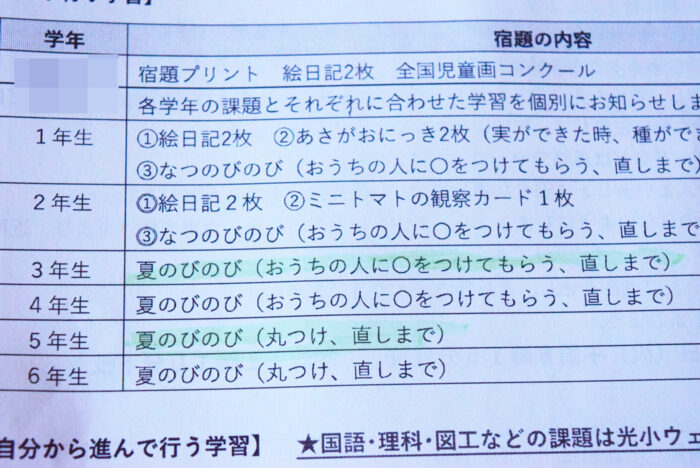 学年 宿題の内容
宿題プリント 絵日記2枚 全国児童画コンクール
各学年の課題とそれぞれに合わせた学習を個別にお知らせしま
1年生 ①絵日記2枚 ②あさがおにっき2枚（実ができた時、種ができ
③なつのびのび（おうちの人に〇をつけてもらう、直しまで）
2年生 ①絵日記２枚 ②ミニトマトの観察カード１枚
③なつのびのび（おうちの人に〇をつけてもらう、直しまで
3年生 夏のびのび（おうちの人に〇をつけてもらう、直しまで）
4年生 夏のびのび（おうちの人に〇をつけてもらう、直しまで）
5年生 夏のびのび（丸つけ、直しまで）
6年生 夏のびのび（丸つけ、直しまで）
自分から進んで行う学習】 ★国語・理科・図工などの課題は光小ウェ